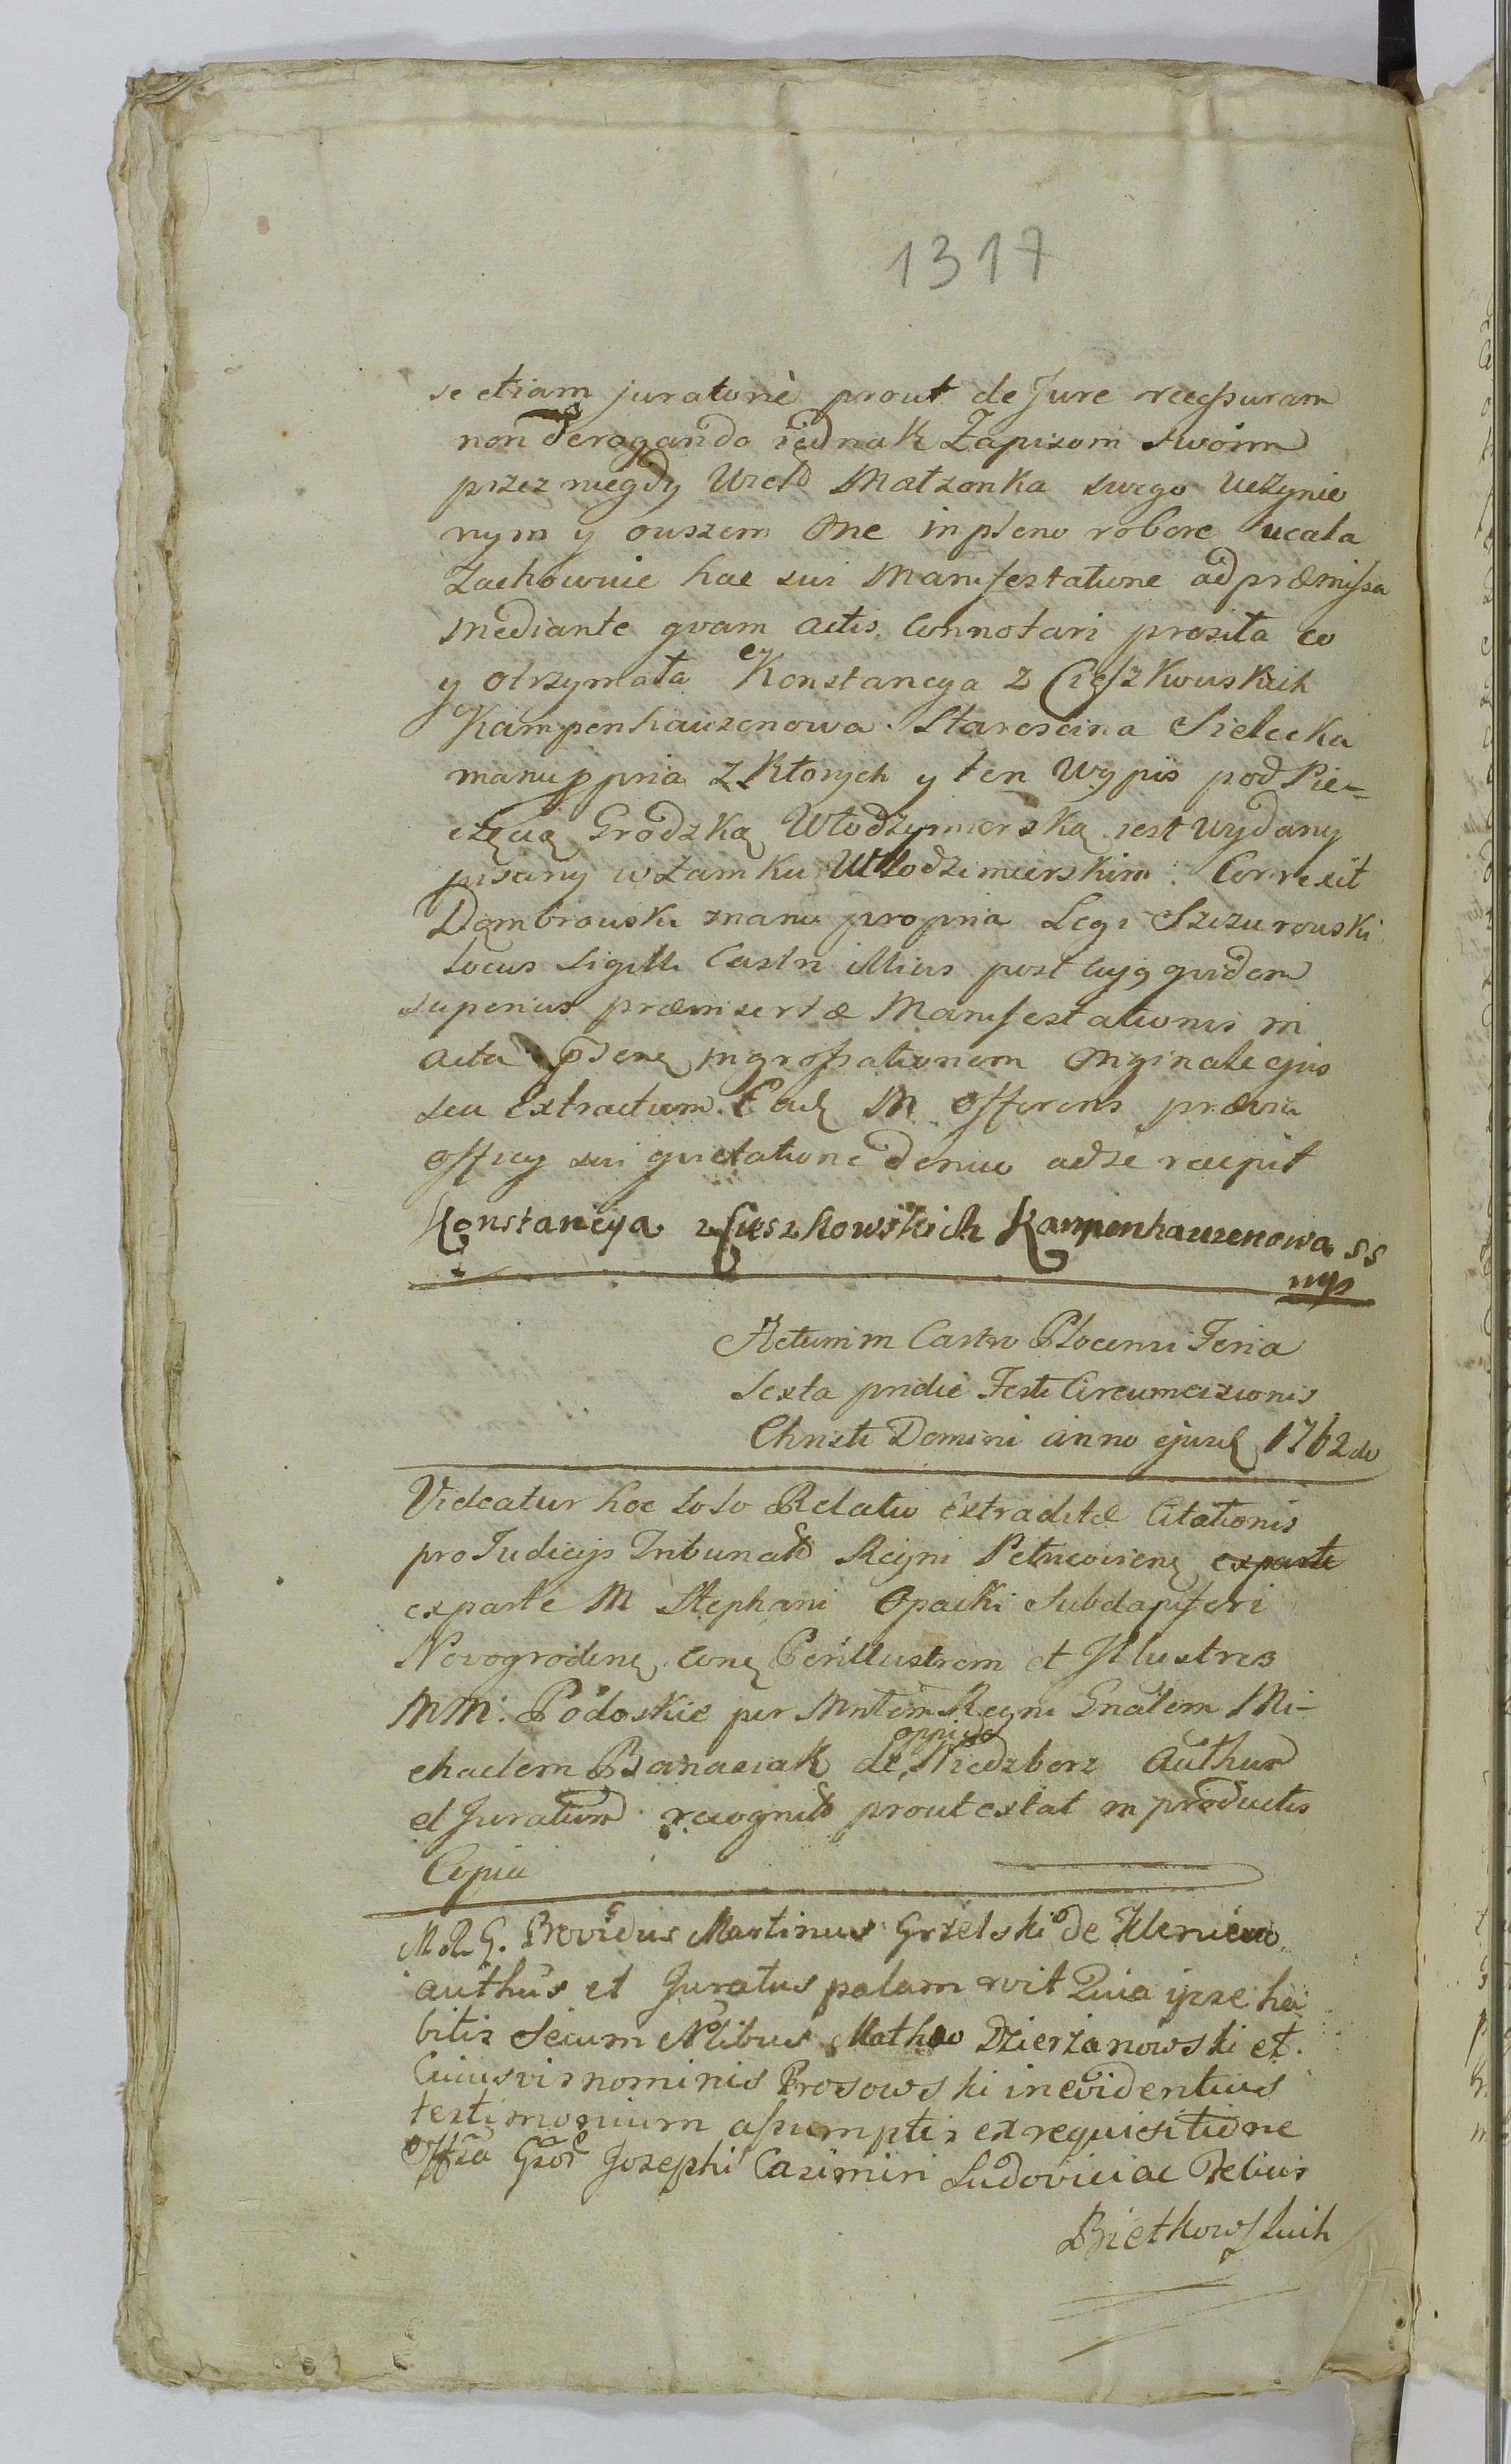 1317
se etiam juratorie prout de Jure recessuram
non derogando iednak Zapisom swoim
przez niegdy Wielo Matzonka swego uczynio
nym y owszem One in pleno robore wcala
Zachownie hac sui Manifestatione ad præmissa
mediante qvam actis Connotari prosiła co
y otrzymała Konstancya z Cieszkowskich
Kampenhauzenowa Staroscina Sielecka
manu ppria z Ktorych y ten Wypis pod Pie-
częcią Grodzką Włodzymierską iest wydany
pisany w Zamku Włodzimierskim. Correxit
Dąmbrowski manu propria Legi Szczurowski
Locus Sigilli Castri illius post cujq quidem
superius præinsertæ Manifestationis in
acta psenę ingrossationem Originale ejus
seu Extractum. Eadę M offerens prævia
officij sui quietatione denuo ad se recepit
Konstancya z Cieszkowskich Kampenhauzenowa SS
mp
Actum in Castro Plocensi Feria
Sexta pridie Festi Circumcisionis
Christi Domini anno ejusdę 1762do
Videatur hoc loco Relatio Extraditæ Citationis
pro Judicijs Tribunalis Regni Petricoviensę exparte
exparte M Stephani Opacki Subdapiferi
Novogrodenę conę Perillustrem et Illustres
MM: Podoskie per Mntem Regni Gnalem Mi-
chaelem Banasiak de oppido Niedzborz Authum
et Juratum recognito prout extat in productis
Copia
M R G. Providus Martinus Grzelski de Kleniewo
authus et Juratus palam rvit Quia ipse ha
bitis Secum Nlibus Matheo Dzierżanowski et
Cuiusvis nominis Brosowski in evidentius
testimonium assumptis ex requisitione
offsa Gsor Josephi Casimiri Ludovici ac Felicis
Bietkowskich